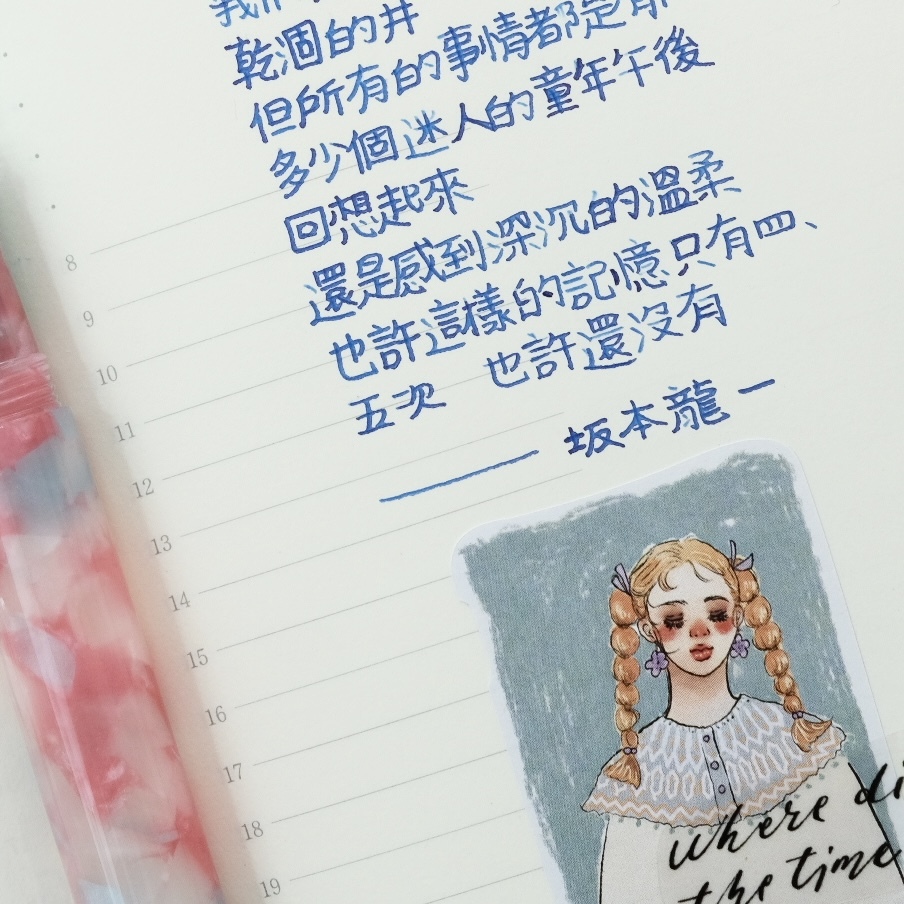 乾涸的井
但所有的事情都是有
多少個迷人的童年午後
回想起來
還是感到深沉的溫柔
也許這樣的記憶只有四、
五次 也許還沒有
—— 坂本龍一
8
9
10
11
12
13
14
15
16
17
18
19
where di
the time